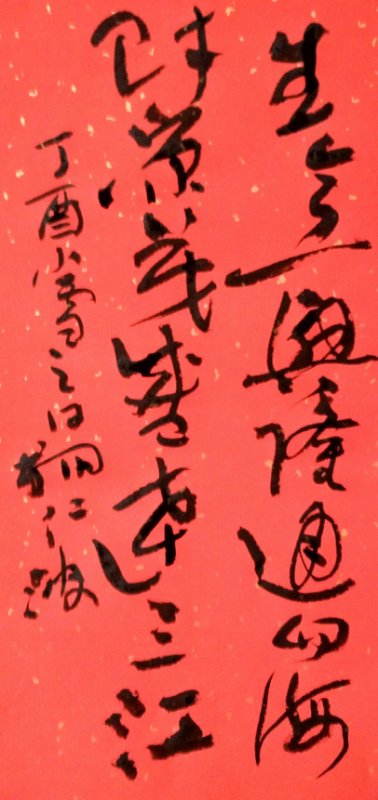 生意興隆通四海
财源茂盛達三江
丁酉小雪之日仁波